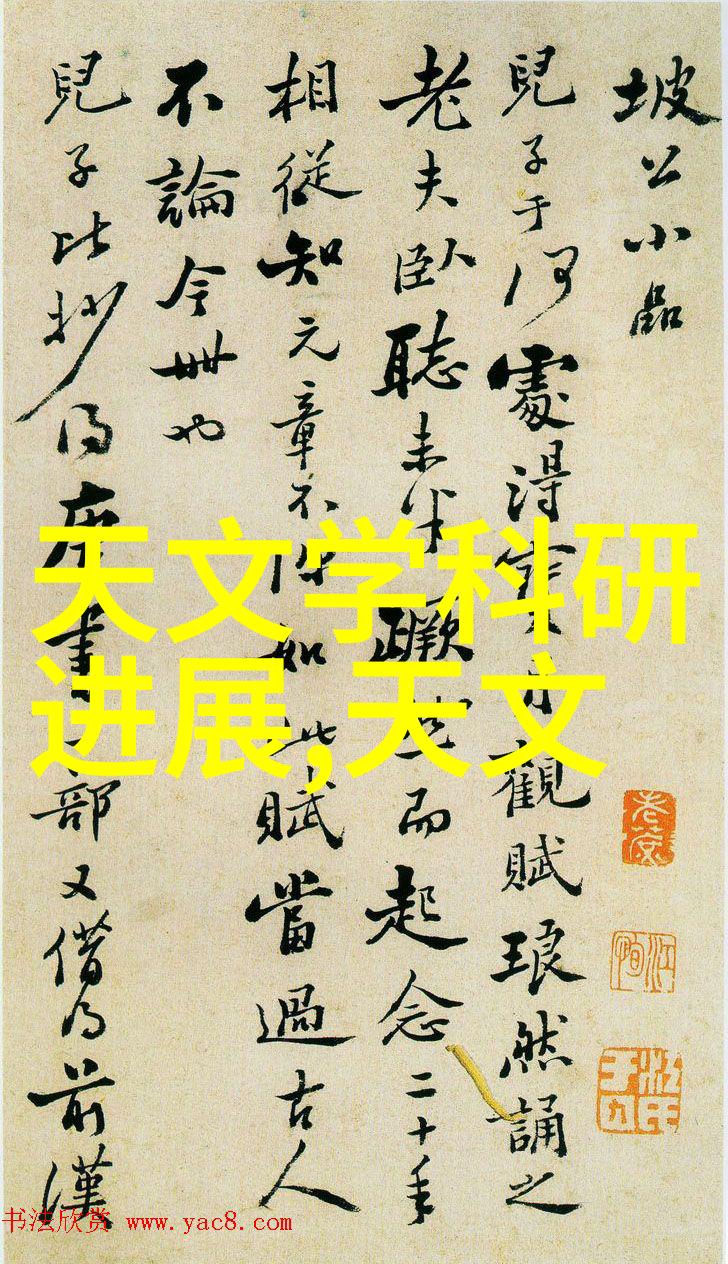 坡公小品
兒子于何處得寶月觀賦琅然誦之
老夫臥聽未半蹶然而起念二十年
相從知元章不如此賦當過古人
不論今世也
兒子比抄得唐書一部又借得前漢
天文学科研
进展,天文
书法欣赏 www.yac8.com